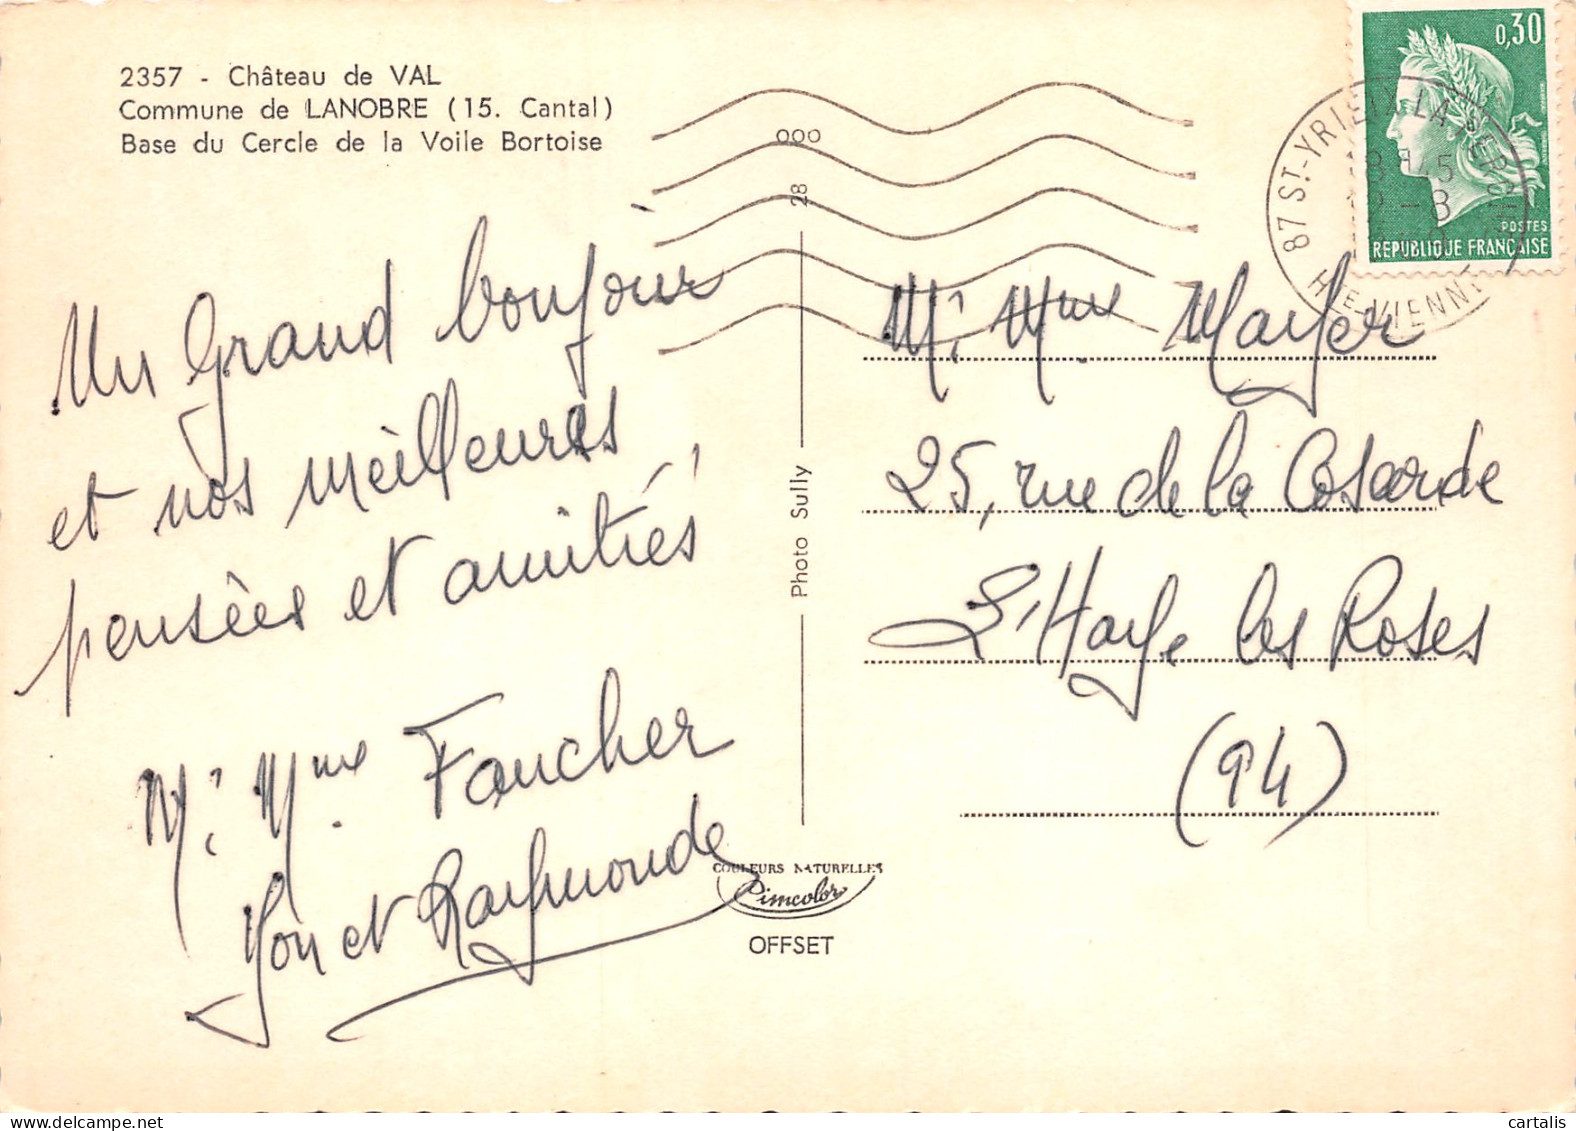 2357 - Château de VAL
Commune de LANOBRE (15. Cantal)
Base du Cercle de la Voile Bortoise
0,30
POSTES
REPUBLIQUE FRANÇAISE
87 ST-YRIEIX-LA-PERCHE
HTE VIENNE
000
28
Un Grand bonjour
et nos meilleures
pensées et amitiés
M. Mme Faucher
Yon et Raymonde
Photo Sully
M. Mme Mayer
25, rue de la Cosarde
L'Haye les Roses
(94)
COULEURS NATURELLES
Pimcolor
OFFSET
cartalis